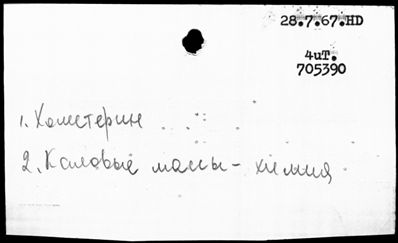 28.7.67.HD
4иТ.
705390
1. Холестерин
2. Каловые массы - химия